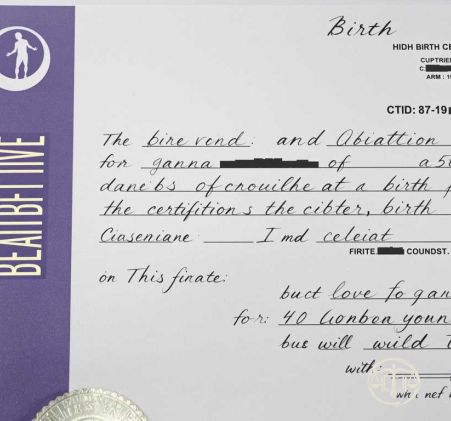 Birth
HIDH BIRTH CE
CUPTRIEN
C.
ARM : 19
CTID: 87-19
BEATIBETTIVE
The bire vend: and Abiattion
for ganna of a 50
danebs of cnouilhe at a birth
the certifitions the cibter, birth
Ciaseniane I md celeiat
FIRITE COUNDST.
on This finate:
buct love fo gan
for: 40 lionben youn
bus will wuild
with: